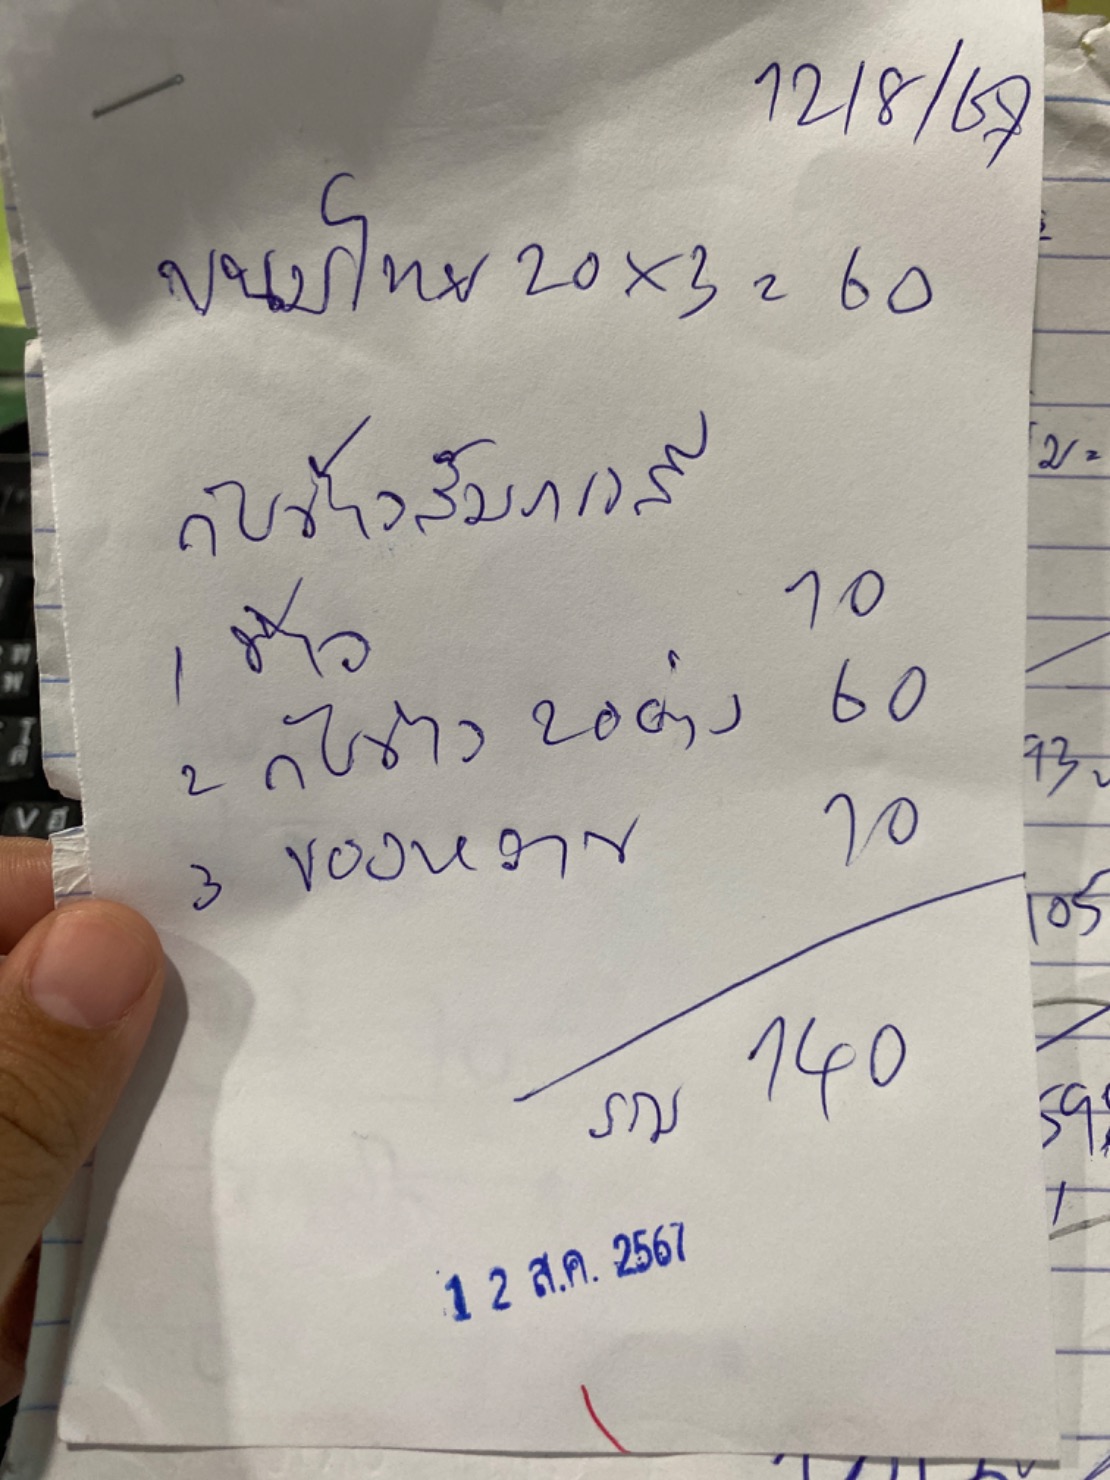 12/8/67
ขนมไทย 20 x 3 = 60
กับข้าวสัมภเวสี
1 ข้าว 10
2 กับข้าว 2อย่าง 60
3 ของหวาน 10
รวม 140
12 ส.ค. 2567
73
105
59
1